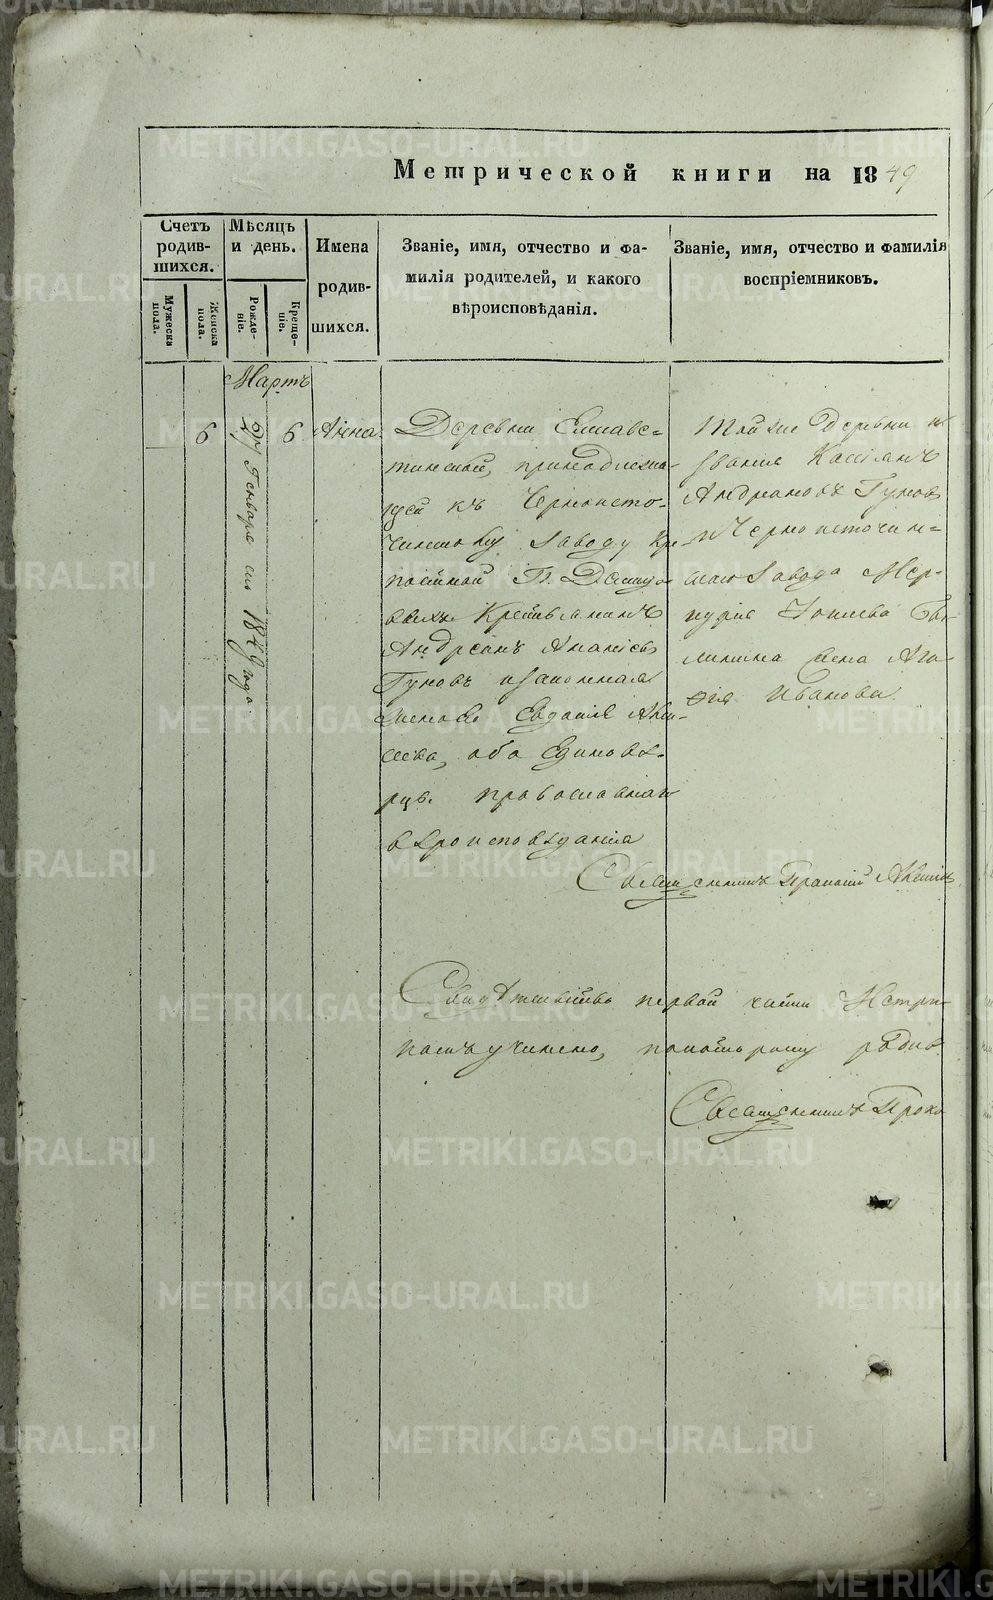 Метрической книги на 1849
Счетъ родив-шихся.
Мужеска пола.
Женска пола.
Мѣсяцъ и день.
Рожде-ніе.
Креще-ніе.
Имена родив-шихся.
Званіе, имя, отчество и фа-
милія родителей, и какого
вѣроисповѣданія.
Званіе, имя, отчество и фамилія
воспріемниковъ.
Мартъ
6
27 Генваря сего 1849 года
6
Анна
Деревни Елисаве-
тинской, принадлежа-
щей къ Черноисто-
чинскому заводу Кре-
постной Г. Демидо-
выхъ Крестьянинъ
Андреянъ Ананіевъ
Гуновъ и законная
жена его Евдокія
оба Единовѣ-
рцы. православнаго
вѣроисповѣданія
Той же деревни и
званія Касіянъ
Андреановъ Гуновъ
и Черноисточин-
скаго завода Мер-
курія
жена Ага-
фія Иванова.
Священникъ
Свидѣтельство первой части Метри-
камъ учинено,
Священникъ Проко
METRIKI.GASO-URAL.RU